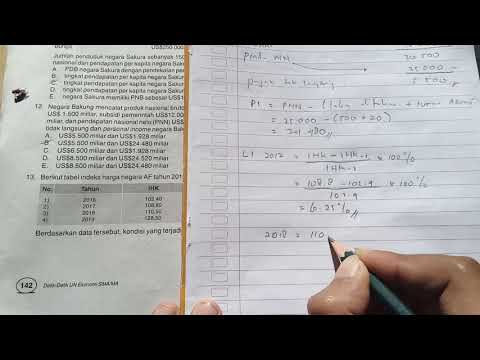 Bunga US$250.000
Jumlah penduduk negara Sakura sebanyak 150
nasional dan pendapatan per kapita negara Saku
A. PDB negara Sakura dengan pendekatan per
B. tingkat pendapatan per kapita negara Saku
C. tingkat pendapatan per kapita negara Saku
D. tingkat pendapatan per kapita negara Saku
E. negara Sakura memiliki PNB sebesar US$1
12. Negara Bakung mencatat produk nasional bruto
US$ 1.600 miliar, subsidi pemerintah US$12.00
miliar, dan pendapatan nasional neto (PNN) US$
tidak langsung dan personal income negara Bak
A. US$5.500 miliar dan US$1.928 miliar
B. US$5.500 miliar dan US$24.480 miliar
C. US$6.500 miliar dan US$1.928 miliar
D. US$6.500 miliar dan US$24.520 miliar
E. US$8.500 miliar dan US$24.480 miliar
13. Berikut tabel indeks harga negara AF tahun 201
No. Tahun IHK
1) 2016 102,40
2) 2017 108,80
3) 2018 110,50
4) 2019 128,50
Berdasarkan data tersebut, kondisi yang terjadi
142 Detik-Detik UN Ekonomi SMA/MA
30 500
25 000 -
5 500
PI = PNN - (laba ditahan + iuran
= 25.000 - (500 + 20)
= 24.480 //
LI 2017 = IHK - IHK-1 x 100%
IHK-1
= 108.8 - 102.4 x 100%
102.4
= 6.25% //
2018 = 110